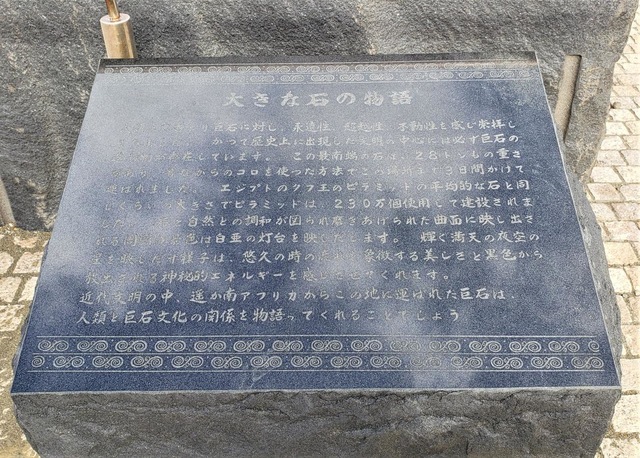 大きな石の物語
巨石に対し、永遠性、超越性、不動性を感じ崇拝し
かつて歴史上に出現した文明の中心には必ず巨石の
しています。この最南端の石は、28トンもの重さ
からのコロを使った方法でこの場所まで3日間かけて
運ばれました。エジプトのクフ王のピラミッドの平均的な石と同
じくらい 大きさでピラミッドは、230万個使用して建設されま
した。 自然との調和が図られ磨きあげられた曲面に映し出さ
れる は白亜の灯台を映しだします。輝く満天の夜空の
星を映しだす様子は、悠久の時の 象徴する美しさと黒色から
神秘的エネルギーを感じさせてくれます。
近代文明の中、遥か南アフリカからこの地に運ばれた巨石は、
人類と巨石文化の関係を物語ってくれることでしょう